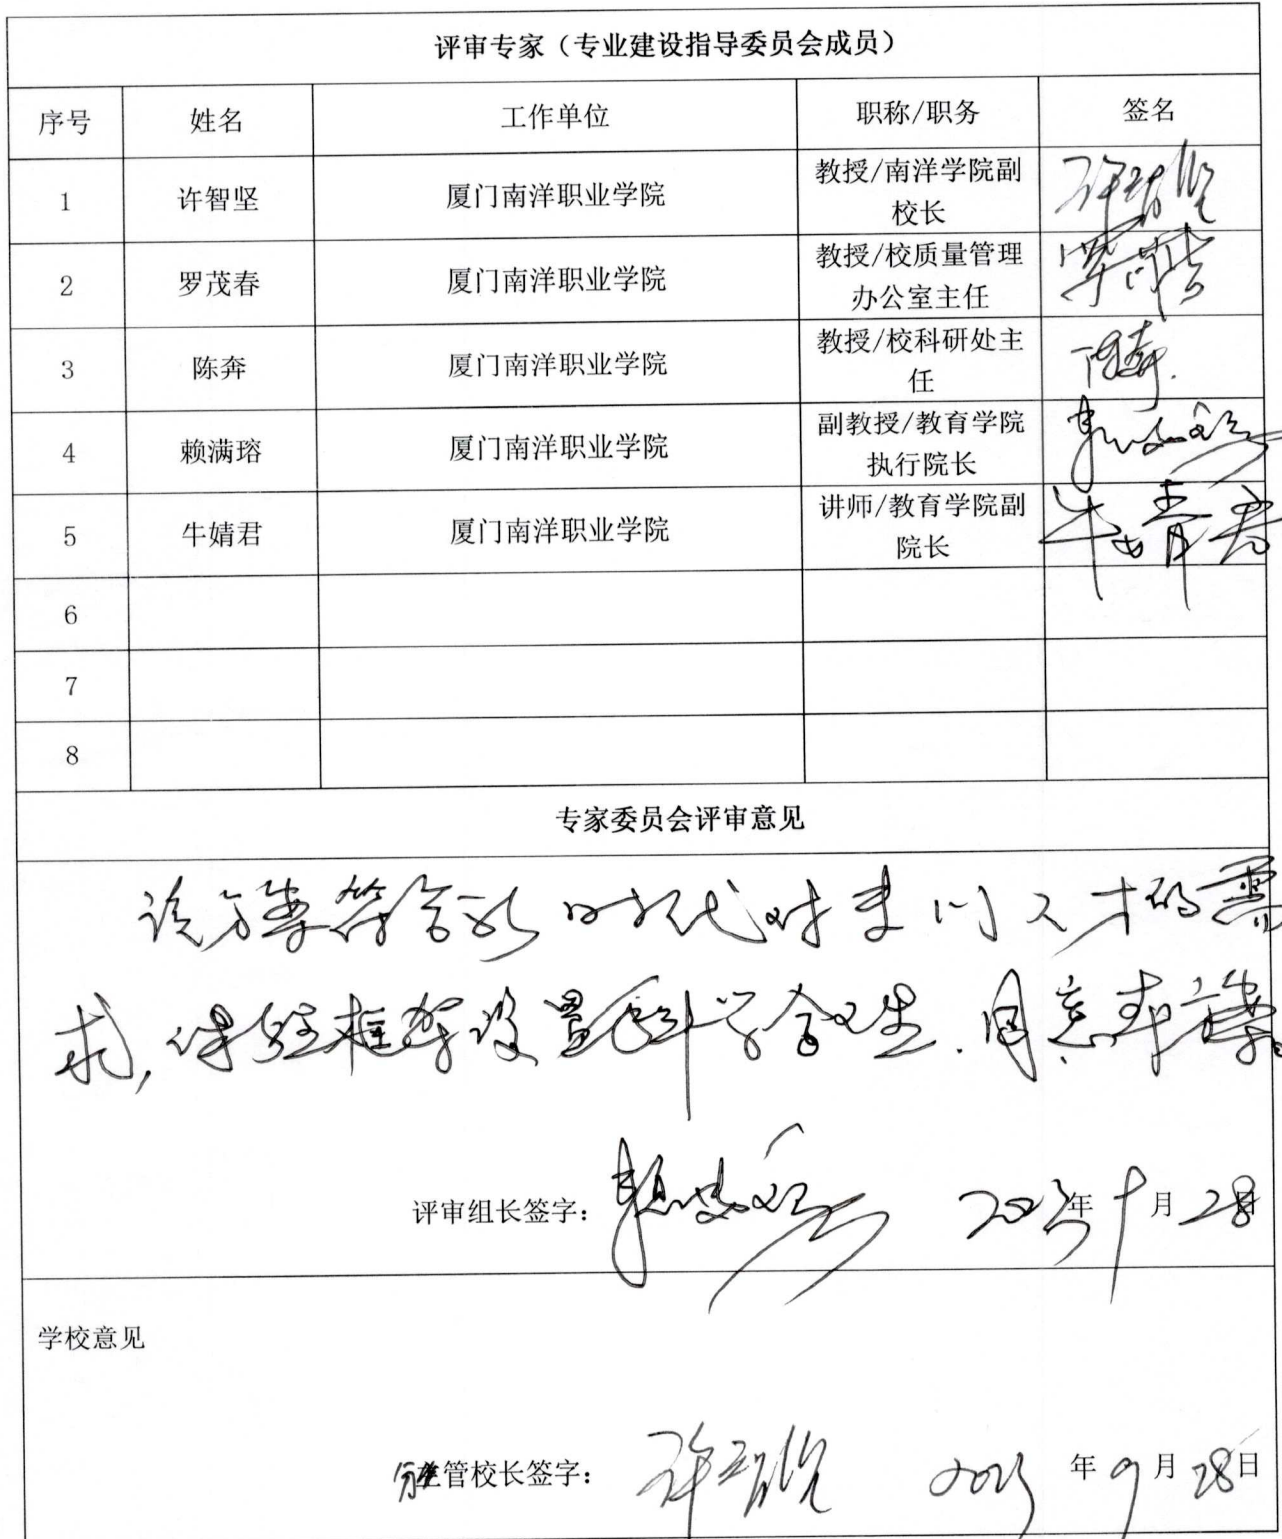 评审专家（专业建设指导委员会成员）
序号 姓名 工作单位 职称/职务 签名
1 许智坚 厦门南洋职业学院 教授/南洋学院副校长 许智坚
2 罗茂春 厦门南洋职业学院 教授/校质量管理办公室主任
3 陈奔 厦门南洋职业学院 教授/校科研处主任 陈奔
4 赖满瑢 厦门南洋职业学院 副教授/教育学院执行院长 赖满瑢
5 牛婧君 厦门南洋职业学院 讲师/教育学院副院长 牛婧君
6
7
8
专家委员会评审意见
该方案符合新时代对专门人才的需
求，课程框架设置科学合理．同意
评审组长签字：赖满瑢 2023年9月28日
学校意见
管校长签字：许智坚 2023年9月28日